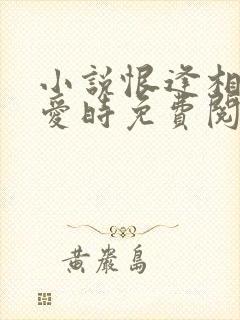 小說恨逢相
愛時免費閱
黃巖島